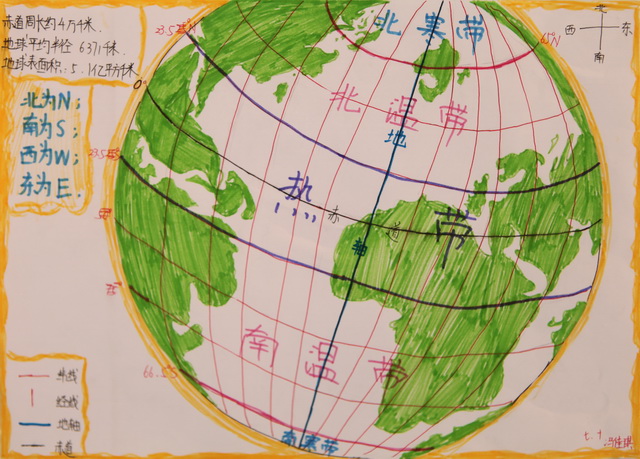 赤道周长约4万千米.
地球平均半径 6371千米.
地球表面积:5.1亿平方千米
北为N;
南为S;
西为W;
东为E.
北
西 东
南
0°
北寒带
北温带
地
热 带
赤 道
轴
南温带
66.5°S
南寒带
纬线
经线
地轴
赤道